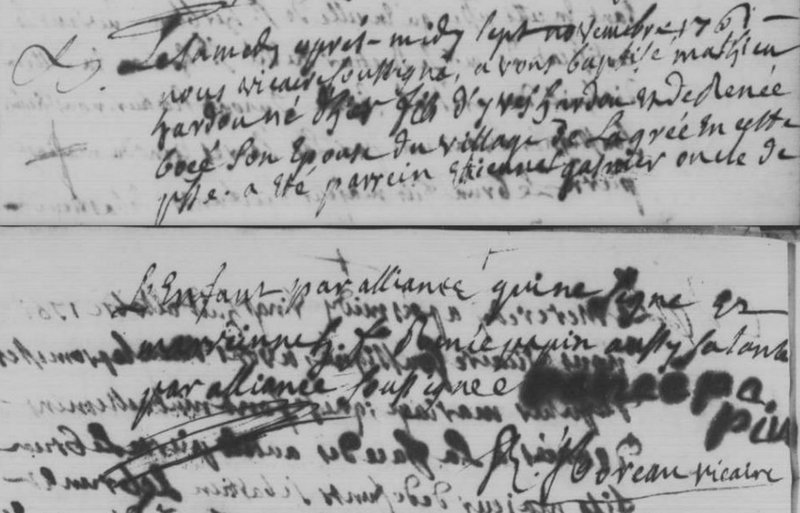 Le samedy apres-midy sept novembre 1761
nous vicaire soussigné, avons baptisé mathieu
hardou né d'hier fils d'yves hardou et de Renée
bocé son Epouse du village de la grée en cette
psse. a été parrein Etienne garnier oncle de
l'Enfant par alliance qui ne signe et
marrinne Renée pain aussy sa tante
par alliance soussignée
pin
Moreau vicaire